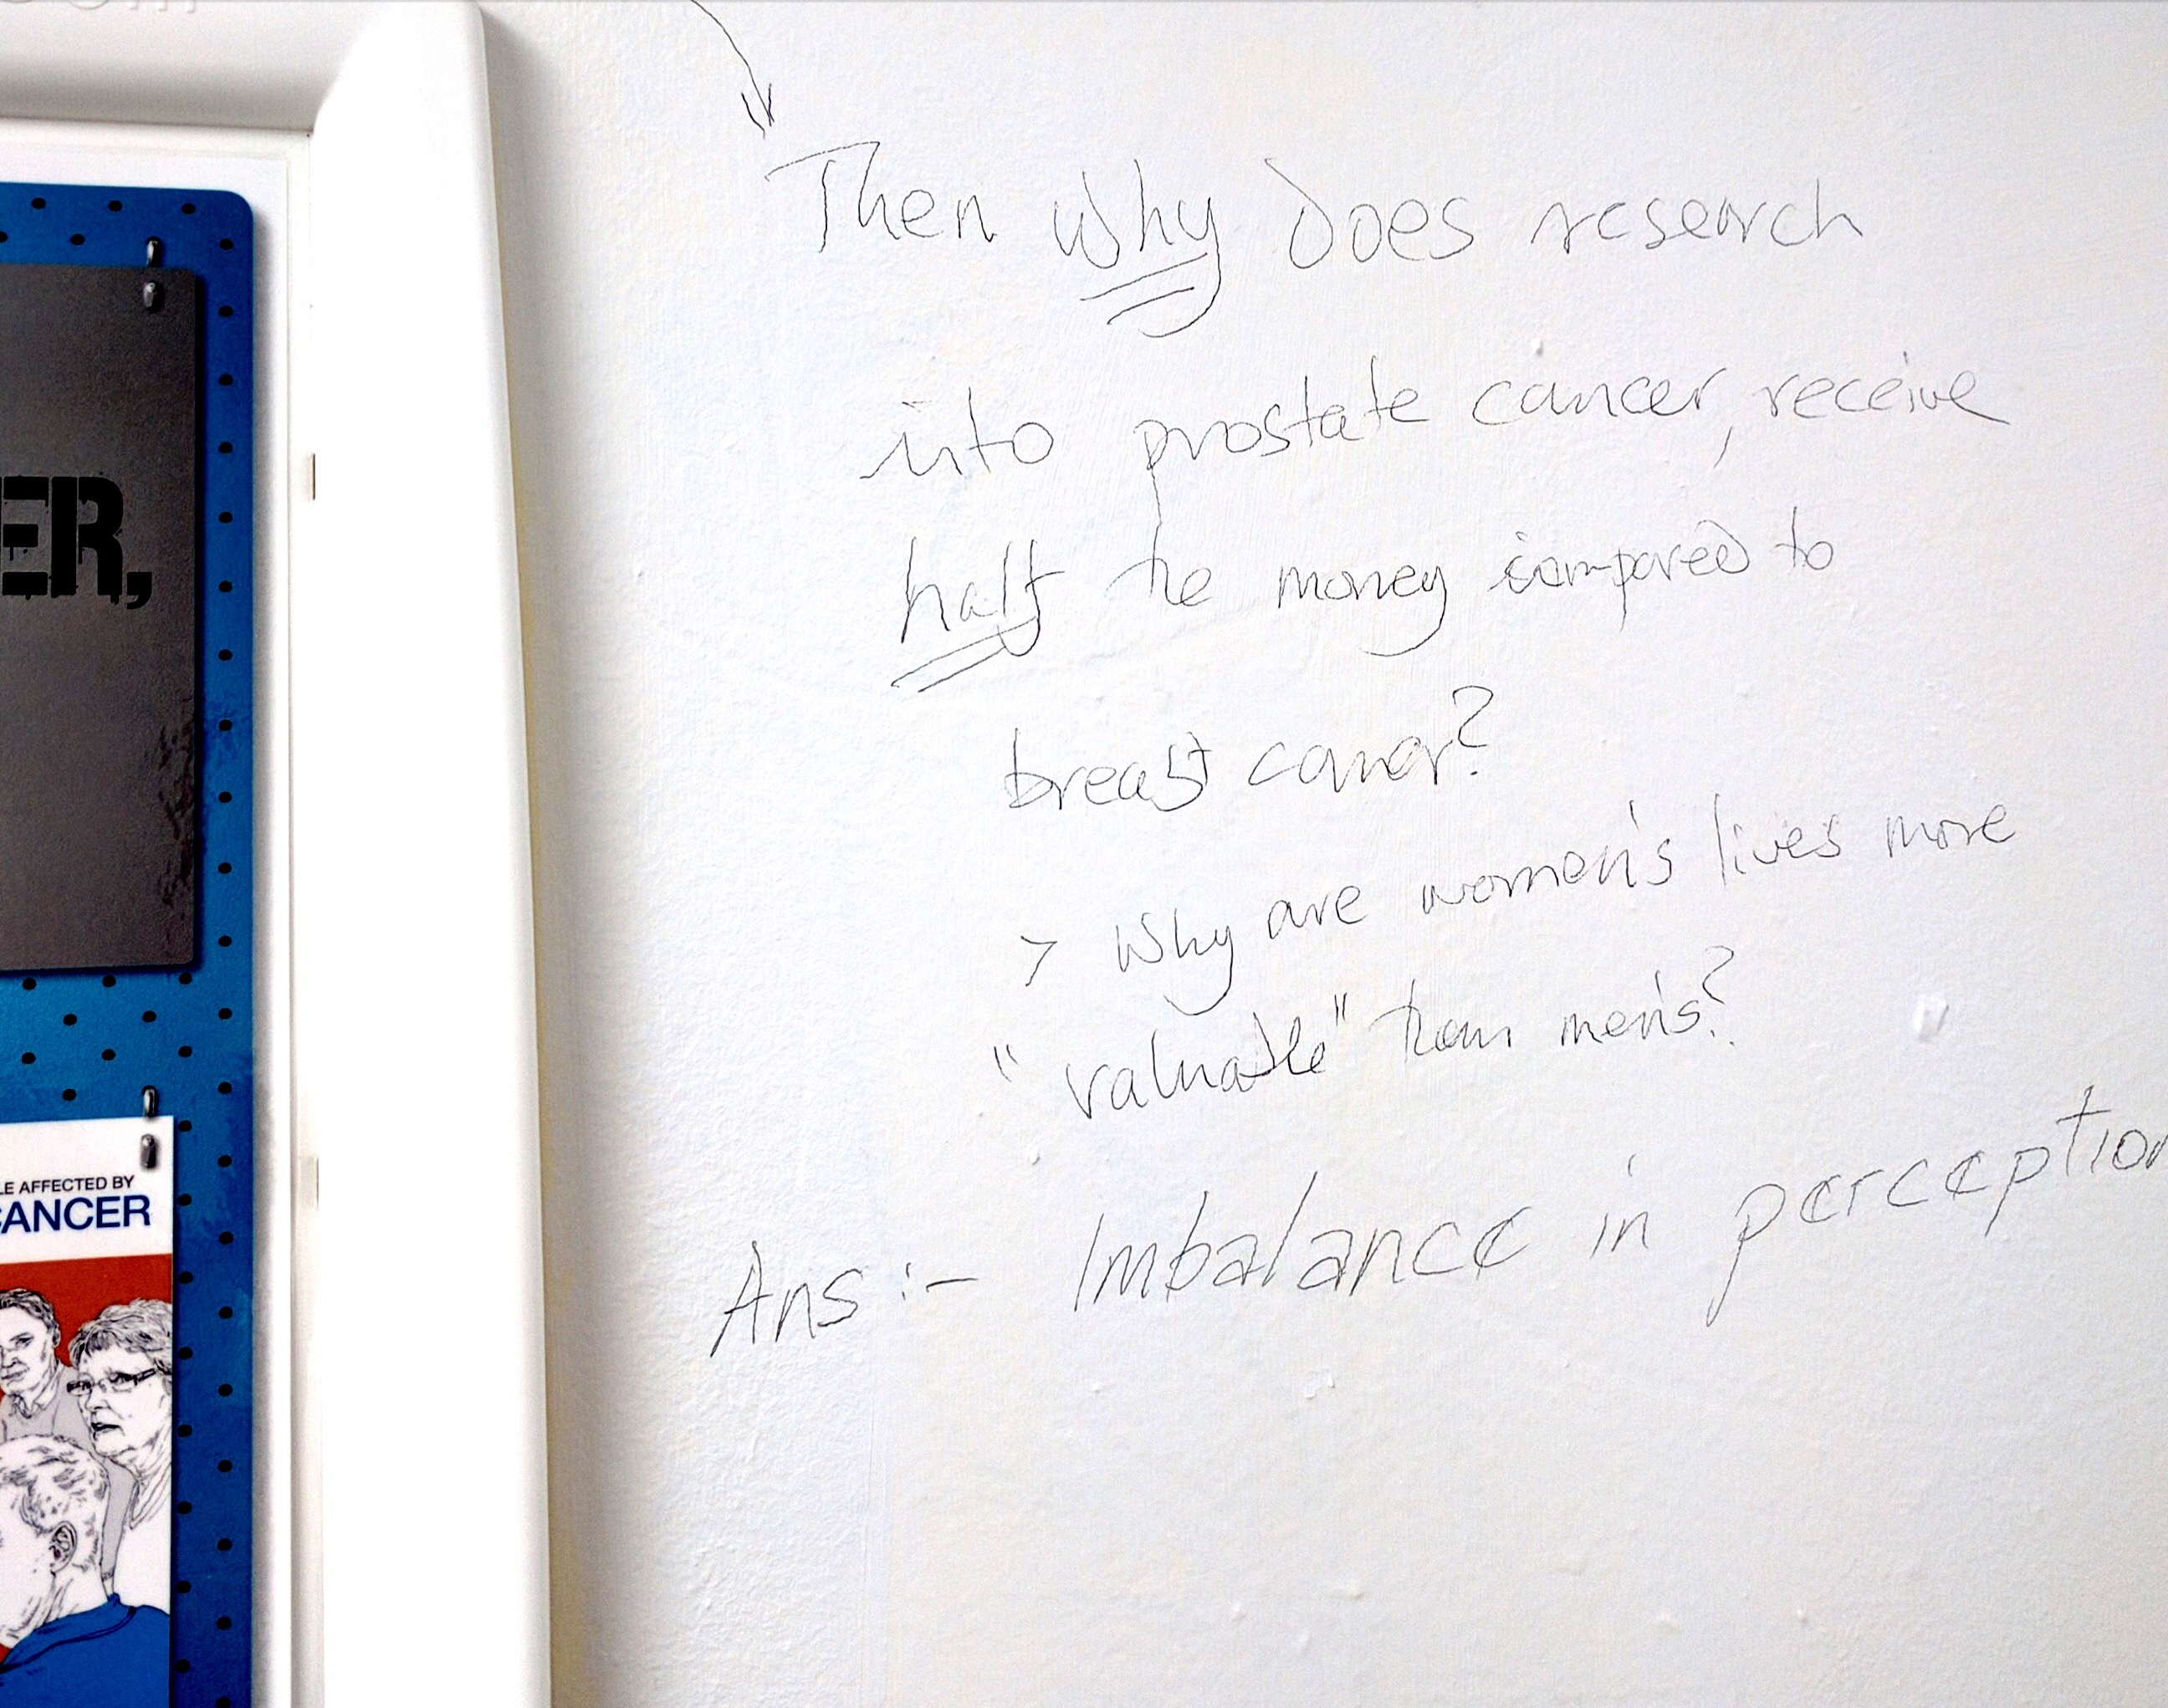 ER,
LE AFFECTED BY
CANCER
Then why does research
into prostate cancer, receive
half the money compared to
breast cancer?
> Why are women's lives more
"valuable" than men's?
Ans:- Imbalance in perception